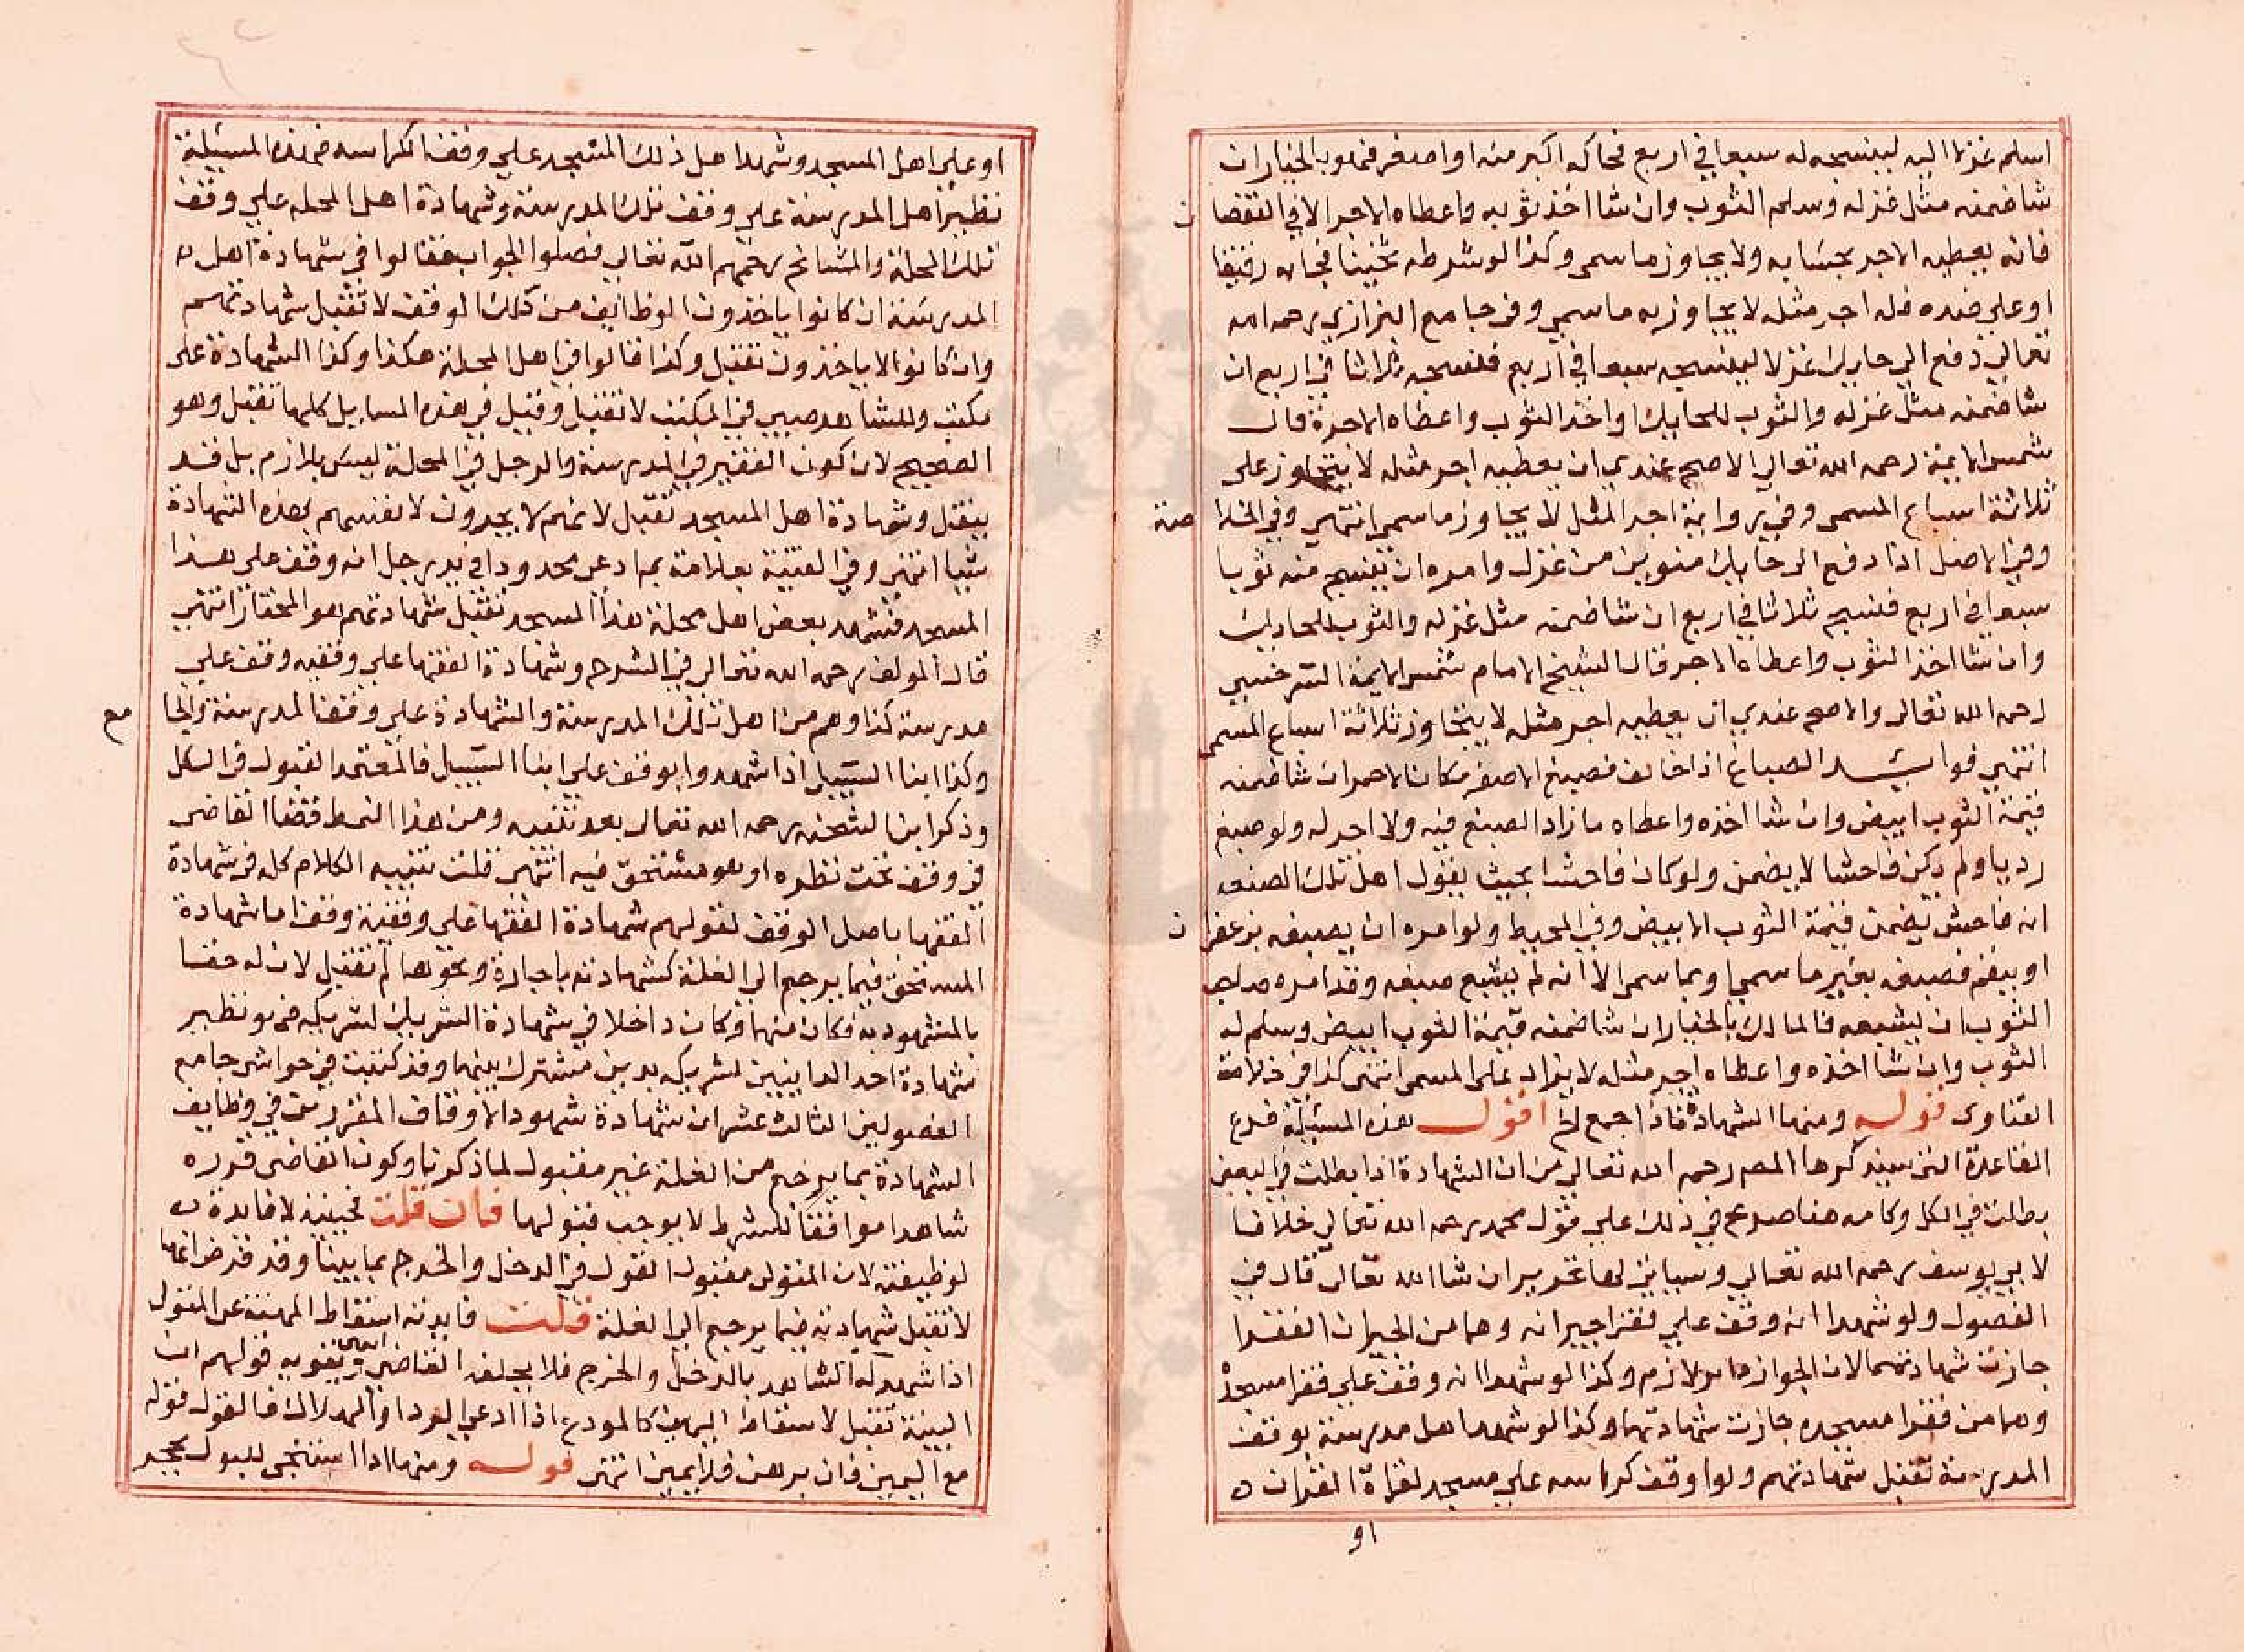 اسلم غزلا اليه لينسجه له سبعا في اربع فحاكه اكبر منه او اصغر فهو بالخيار ان
شا ضمنه مثل غزله وسلم الثوب وان شا اخذ ثوبه واعطاه الاجر الا في النقصا ن
فانه يعطيه الاجر بحسابه ولا يجاوز ما سمى وكذا لو شرط ثخينا فجا به رقيقا
او على ضده فله اجر مثله لا يجاوز به ما سمى وفي جامع البزازي رحمه الله
تعالى دفع الى حايك غزلا لينسجه سبعا في اربع فنسجه ثلاثا في اربع ان
شا ضمنه مثل غزله والثوب للحايك او اخذ الثوب واعطاه الاجرة قال
شمس الايمة رحمه الله تعالى الاصح عندي ان يعطيه اجر مثله لا يتجاوز على
ثلاثة اسباع المسمى وفي رواية اجر المثل لا يجاوز ما سمى انتهى وفي الخلا صة
وفي الاصل اذا دفع الى حايك منوين من غزل وامره ان ينسج منه ثوبا
سبعا في اربع فنسج ثلاثا في اربع ان شا ضمنه مثل غزله والثوب للحايك
وان شا اخذ الثوب واعطاه الاجر قال الشيخ الامام شمس الايمة السرخسي
رحمه الله تعالى والاصح عندي ان يعطيه اجر مثله لا يتجاوز ثلاثة اسباع المسمى
انتهى فوايد الصباغ اذا خالف فصبغ الاصفر مكان الاحمر ان شا ضمنه
قيمة الثوب ابيض وان شا اخذه واعطاه ما زاد الصبغ فيه ولا اجر له ولو صبغ
رديا ولم يكن فاحشا لا يضمن ولو كان فاحشا بحيث يقول اهل تلك الصنعه
انه فاحش يضمن قيمة الثوب الابيض وفي المحيط ولو امره ان يصبغه بزعفرا ن
او بيقم فصبغه بغير ما سمى او بما سمى الا انه لم يشبع صبغه وقد امره صاحب
الثوب ان يشبعه فالمالك بالخيار ان شا ضمنه قيمة الثوب ابيض وسلم له
الثوب وان شا اخذه واعطاه اجر مثله لا يزاد على المسمى انتهى كذا في خلاصة
الفتاوى قوله ومنها الشهادة فاذا جمع الخ اقول هذه المسئلة فرع
القاعدة التي سيذكرها المص رحمه الله تعالى من ان الشهادة اذا بطلت في البعض
بطلت في الكل وكامه هنا صدرح في ذلك على قول محمد رحمه الله تعالى خلافا
لابي يوسف رحمه الله تعالى وسياتي لها تحرير ان شا الله تعالى قال في
الفصول ولو شهدا انه وقف على فقرا جيرانه وهما من الجيران الفقرا
جازت شهادتهما لان الجواز ما بر لازم وكذا لو شهدا انه وقف على فقرا مسجد
وهما من فقرا مسجده جازت شهادتهما وكذا لو شهدا اهل مدرسة بوقف
المدرسة تقبل شهادتهم ولو اوقف كراسه على مسجد لقراة القران ه
او
او على اهل المسجد وشهدا هل ذلك المسجد على وقف الكراسه فهذه المسيلة
نظير اهل المدرسة على وقف تلك المدرسة وشهادة اهل المحلة على وقف
تلك المحلة والمشايخ رحمهم الله تعالى فصلوا الجواب فقالوا في شهادة اهل ه
المدرسة ان كانوا ياخذون الوظايف من ذلك الوقف لا تقبل شهادتهم
وان كانوا لا ياخذون تقبل وكذا قالوا في اهل المحلة هكذا وكذا الشهادة على
مكتب وللشاهد صبي في المكتب لا تقبل وقيل في هذه المسايل كلها تقبل وهو
الصحيح لان كون الفقير في المدرسة والرجل في المحلة ليس بلازم بل قد
ينتقل وشهادة اهل المسجد تقبل لانهم لا يجرون لانفسهم بهذه الشهادة
شيا انتهى وفي القنية بعلامة بم ادعى محدودا في يد رجل انه وقف على هذا
المسجد فشهد بعض اهل محلة هذا المسجد تقبل شهادتهم هو المختار انتهى
قال المولف رحمه الله تعالى في الشرح وشهادة الفقها على وقفيه وقف على
مدرسة كذا وهم من اهل تلك المدرسة والشهادة على وقف المدرسة والجا مع
وكذا ابنا السبيل اذا شهدوا بوقف على ابنا السبيل فالمعتمد القبول في الكل
وذكر ابن الشحنه رحمه الله تعالى بعد نقله ومن هذا النمط قضا القاضي
في وقف تحت نظره او هو مستحق فيه انتهى قلت تنبيه الكلام كله في شهادة
الفقها باصل الوقف لقولهم شهادة الفقها على وقفية وقف اما شهادة
المستحق فيما يرجع الى الغلة كشهادته باجارة ونحوها لم تقبل لان له حقا
بالمشهود به فكان متهما فكان داخلا في شهادة الشريك لشريكه فهو نظير
شهادة احد الداينين لشريكه بدين مشترك بينهما وقد كتبت في حواشي جامع
الفصولين الثالث عشر ان شهادة شهود الاوقاف المقررين في وظايف
الشهادة بما يرجع من الغلة غير مقبول لما ذكرنا وكون القاضي قرره
شاهدا موافقا للشرط لا يوجب قبولها فان قلت فحينيذ لا فايدة ه
لوظيفته لان المتولي مقبول القول في الدخل والخرج بما بينا وقد قدم انها
لا تقبل شهادته فيما يرجع الى الغلة قلت فايدته اسقاط التهمة عن المتولي
اذا شهد له الشاهد بالدخل والخرج فلا يحلفه القاضي انتهى ويقويه قولهم ان
البينة تقبل لاسقاط اليمين كالمودع اذا ادعى الرد او الهلاك فالقول قوله
مع اليمين فان برهن فلا يمين انتهى قوله ومنها اذا استنجى للبول بحجر